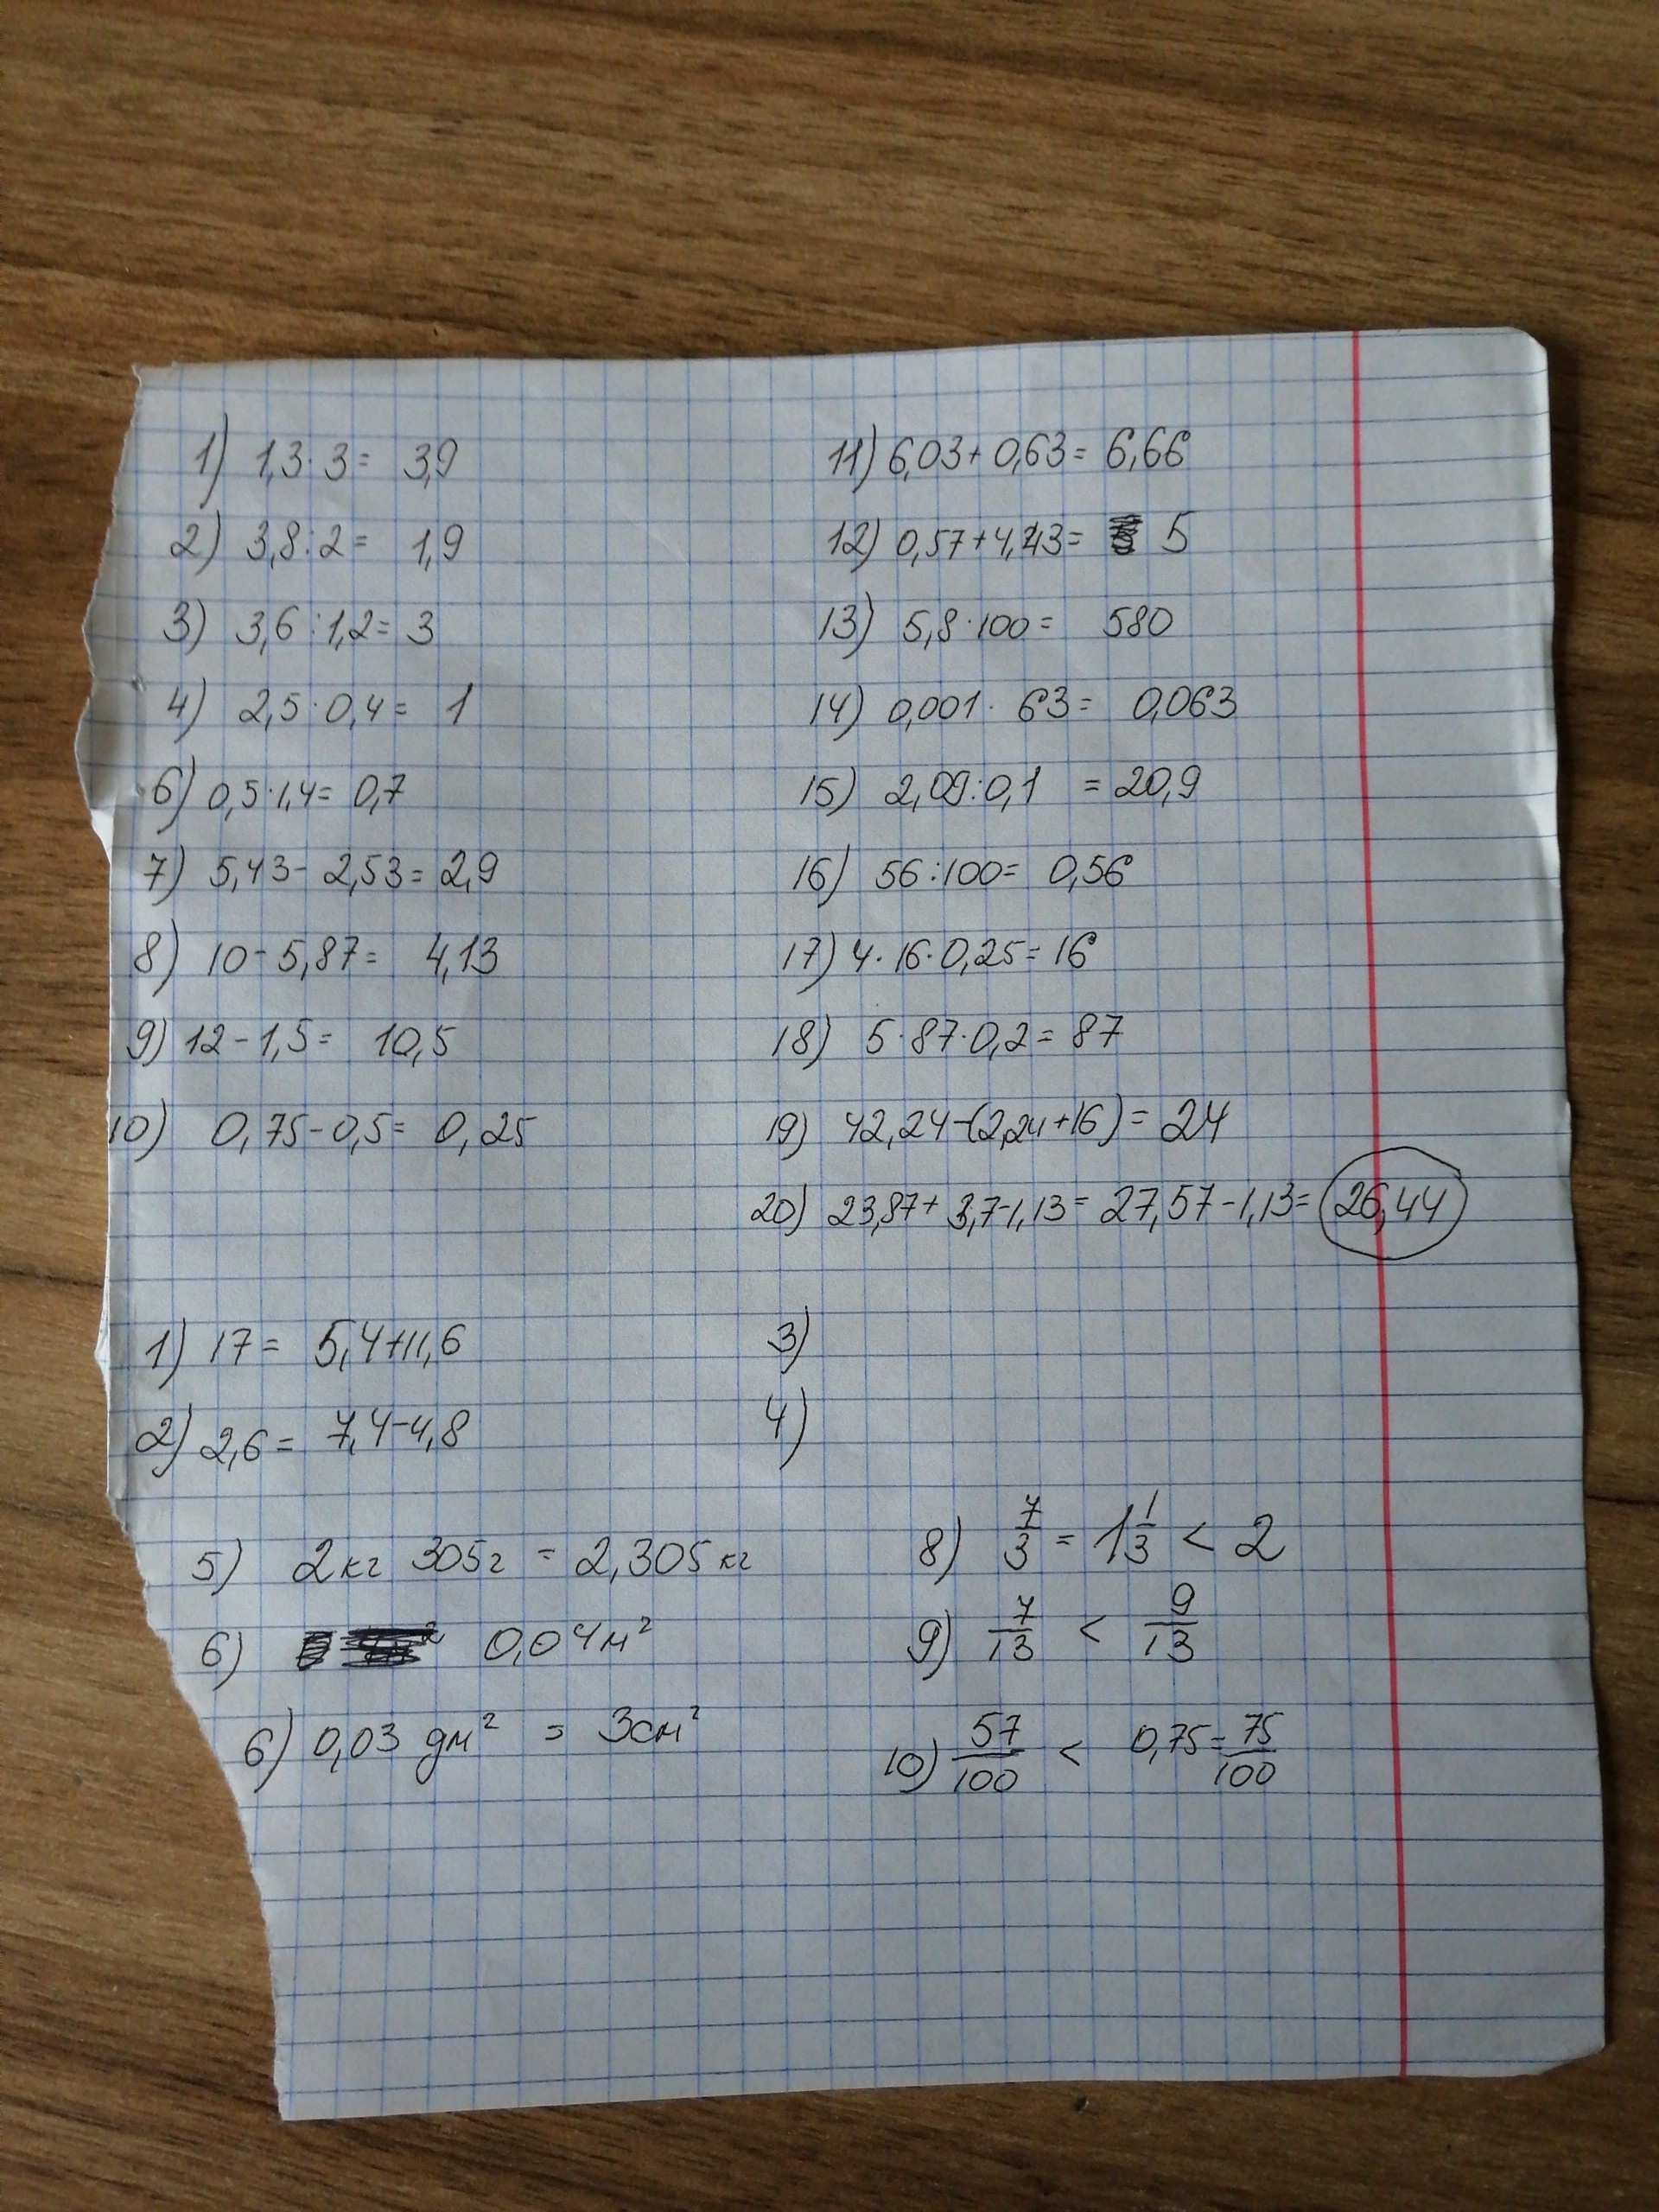 1) 1,3·3= 3,9
2) 3,8:2= 1,9
3) 3,6:1,2= 3
4) 2,5·0,4= 1
6) 0,5·1,4= 0,7
7) 5,43- 2,53= 2,9
8) 10-5,87= 4,13
9) 12-1,5= 10,5
10) 0,75-0,5= 0,25
11) 6,03+ 0,63= 6,66
12) 0,57+4,43= 5
13) 5,8·100= 580
14) 0,001· 63= 0,063
15) 2,09:0,1 =20,9
16) 56:100= 0,56
17) 4·16·0,25=16
18) 5·87·0,2=87
19) 42,24-(2,24+16)=24
20) 23,87+ 3,7-1,13= 27,57-1,13= 26,44
1) 17= 5,4+11,6
2) 2,6= 7,4-4,8
3)
4)
5) 2кг 305г = 2,305кг
6) 0,04м²
6) 0,03 дм² = 3см²
8) 7/3 = 1 1/3 < 2
9) 7/13 < 9/13
10) 57/100 < 0,75=75/100